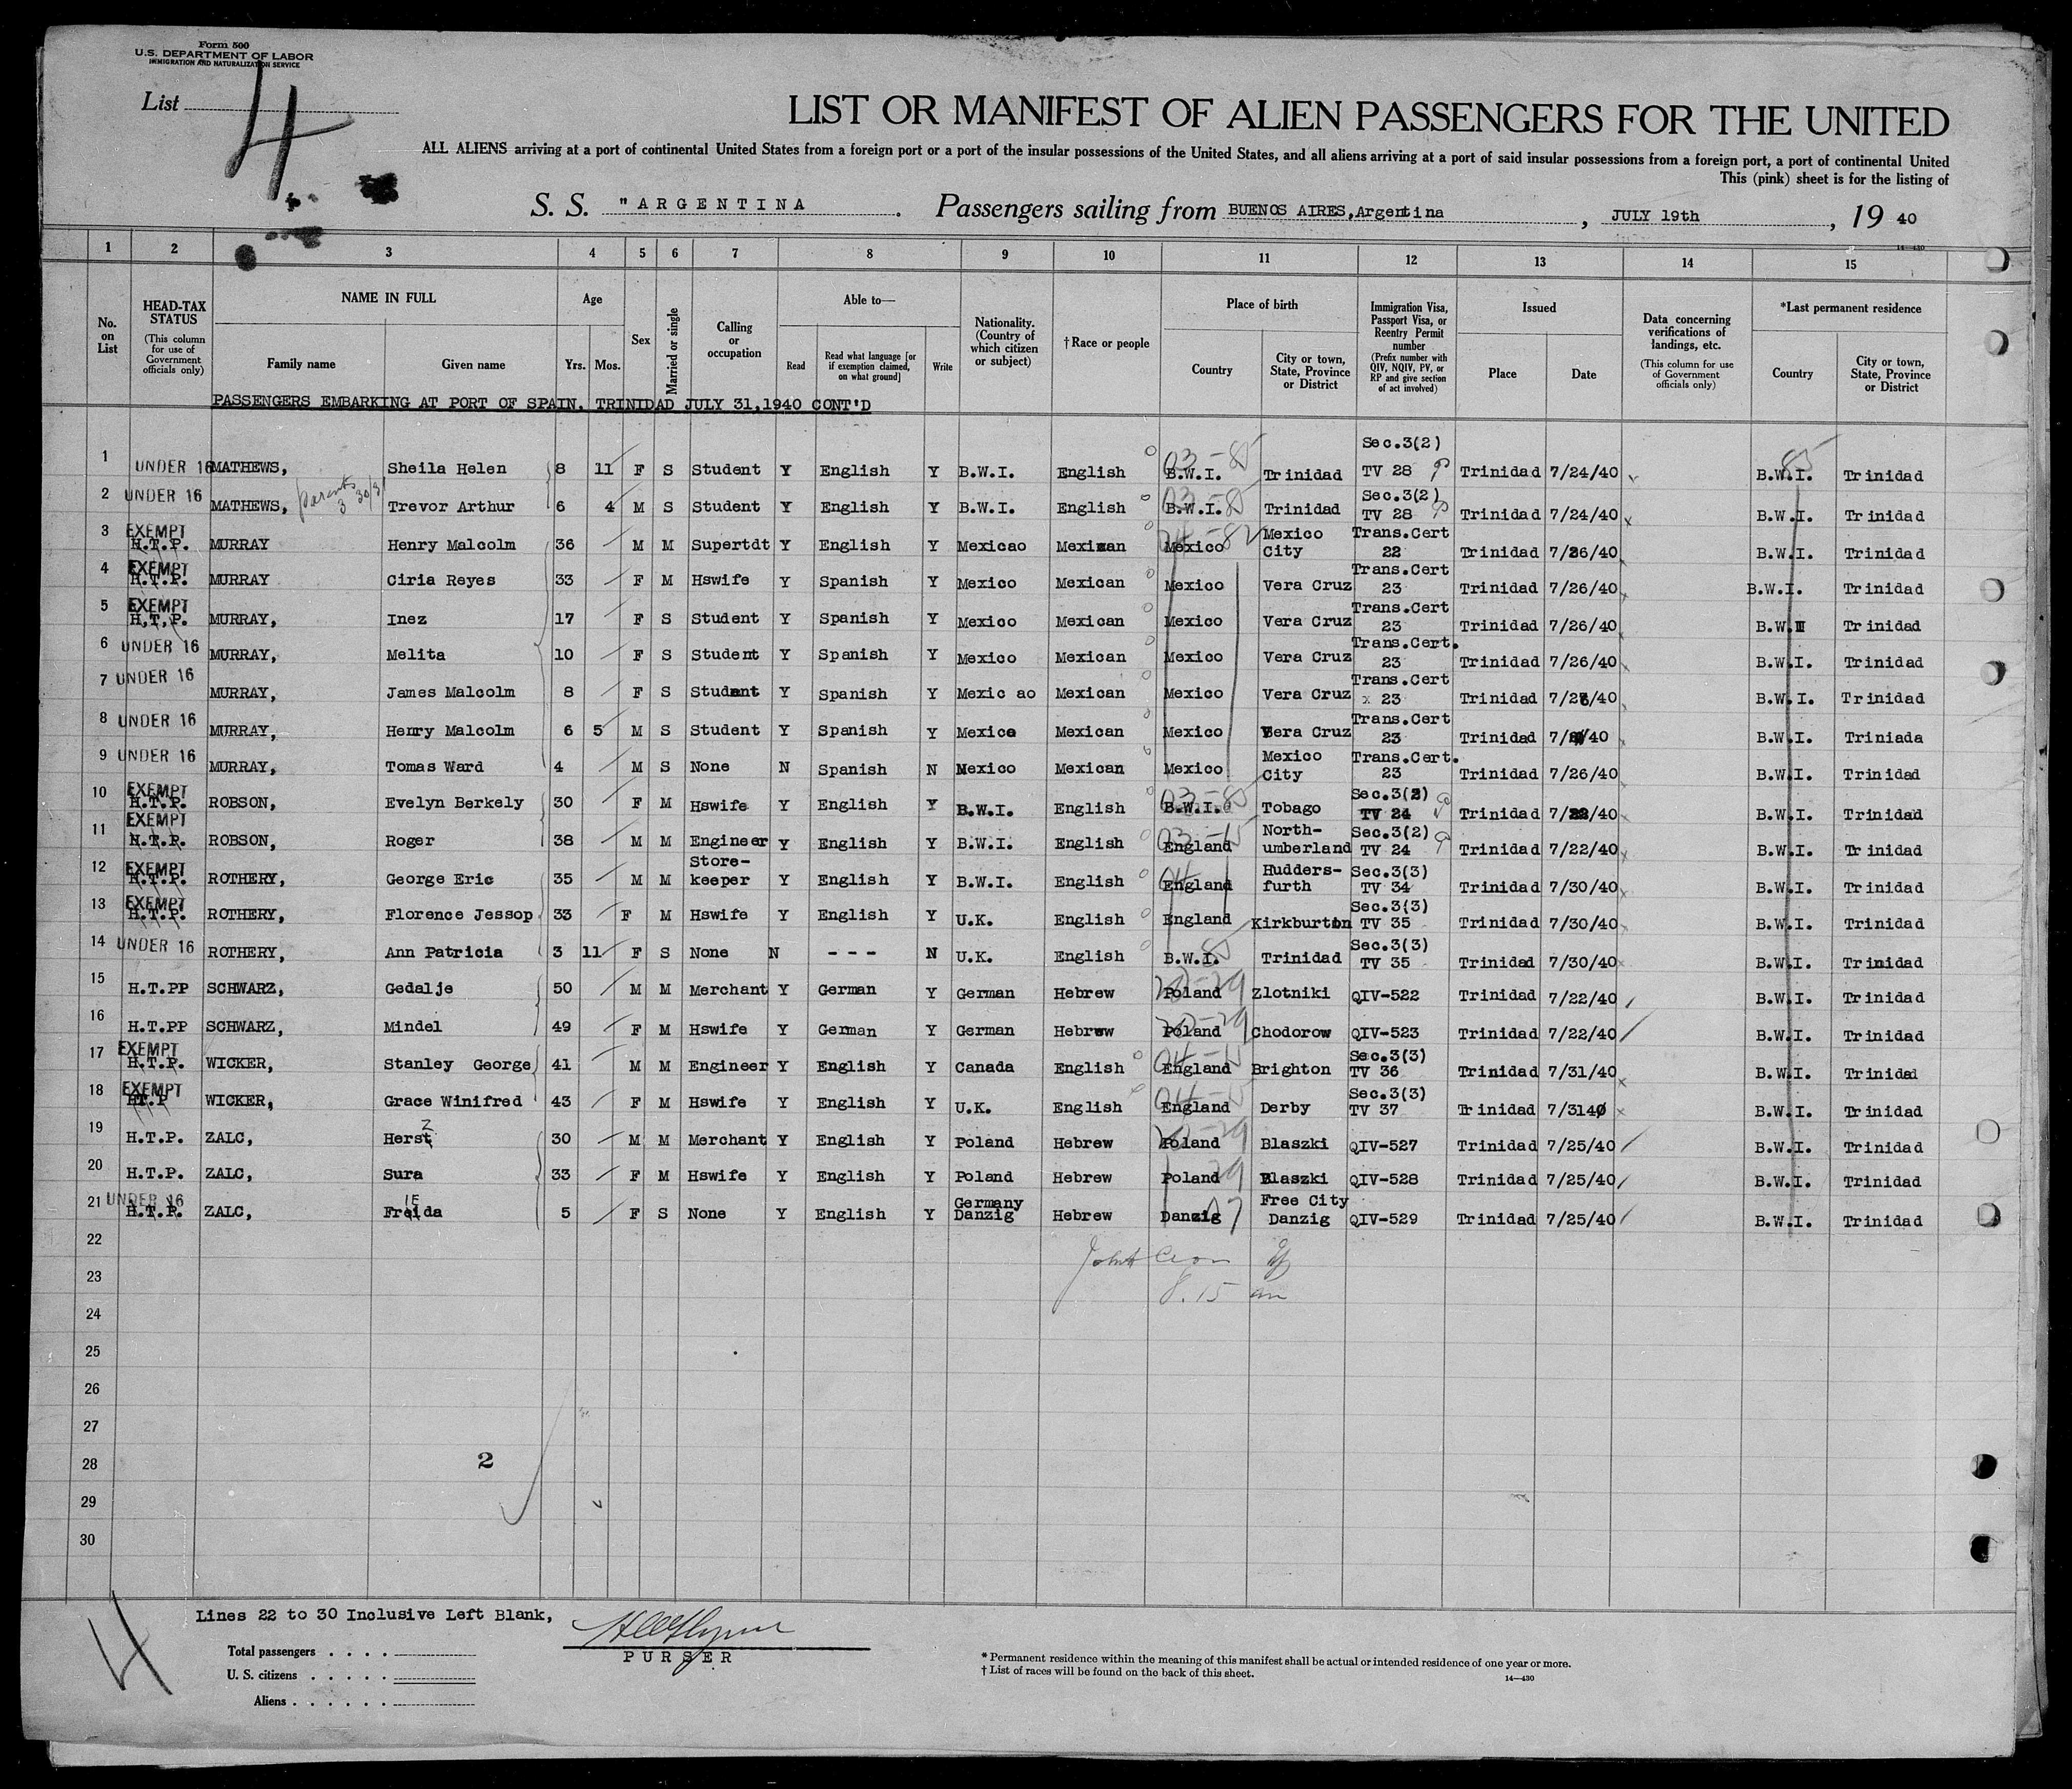 Form 500
U.S. DEPARTMENT OF LABOR
IMMIGRATION AND NATURALIZATION SERVICE
List 4
LIST OR MANIFEST OF ALIEN PASSENGERS FOR THE UNITED
ALL ALIENS arriving at a port of continental United States from a foreign port or a port of the insular possessions of the United States, and all aliens arriving at a port of said insular possessions from a foreign port, a port of continental United
This (pink) sheet is for the listing of
S. S. "ARGENTINA . Passengers sailing from BUENOS AIRES,Argentina , JULY 19th , 19 40
14—430
1 2 3 4 5 6 7 8 9 10 11 12 13 14 15
No. on List
HEAD-TAX STATUS (This column for use of Government officials only)
NAME IN FULL
Family name Given name
Age
Yrs. Mos.
Sex
Married or single
Calling or occupation
Able to—
Read Read what language [or if exemption claimed, on what ground] Write
Nationality. (Country of which citizen or subject)
†Race or people
Place of birth
Country City or town, State, Province or District
Immigration Visa, Passport Visa, or Reentry Permit number (Prefix number with QIV, NQIV, PV, or RP and give section of act involved)
Issued
Place Date
Data concerning verifications of landings, etc. (This column for use of Government officials only)
*Last permanent residence
Country City or town, State, Province or District
PASSENGERS EMBARKING AT PORT OF SPAIN, TRINIDAD JULY 31,1940 CONT'D
1 UNDER 16 MATHEWS, Sheila Helen 8 11 F S Student Y English Y B.W.I. English 03-85 B.W.I. Trinidad Sec.3(2) TV 28 Trinidad 7/24/40 85 B.W.I. Trinidad
2 UNDER 16 MATHEWS, parents 3 30/31 Trevor Arthur 6 4 M S Student Y English Y B.W.I. English 03-85 B.W.I. Trinidad Sec.3(2) TV 28 Trinidad 7/24/40 B.W.I. Trinidad
3 EXEMPT H.T.P. MURRAY Henry Malcolm 36 M M Supertdt Y English Y Mexicao Mexican 24-82 Mexico Mexico City Trans.Cert 22 Trinidad 7/26/40 B.W.I. Trinidad
4 EXEMPT H.T.P. MURRAY Ciria Reyes 33 F M Hswife Y Spanish Y Mexico Mexican Mexico Vera Cruz Trans.Cert 23 Trinidad 7/26/40 B.W.I. Trinidad
5 EXEMPT H,T,P. MURRAY, Inez 17 F S Student Y Spanish Y Mexico Mexican Mexico Vera Cruz Trans.Cert 23 Trinidad 7/26/40 B.W.I Trinidad
6 UNDER 16 MURRAY, Melita 10 F S Student Y Spanish Y Mexico Mexican Mexico Vera Cruz Trans.Cert. 23 Trinidad 7/26/40 B.W.I. Trinidad
7 UNDER 16 MURRAY, James Malcolm 8 F S Student Y Spanish Y Mexic ao Mexican Mexico Vera Cruz Trans.Cert x 23 Trinidad 7/26/40 B.W.I. Trinidad
8 UNDER 16 MURRAY, Henry Malcolm 6 5 M S Student Y Spanish Y Mexico Mexican Mexico Vera Cruz Trans.Cert 23 Trinidad B.W.I. Triniada
9 UNDER 16 MURRAY, Tomas Ward 4 M S None N Spanish N Mexico Mexican Mexico Mexico City Trans.Cert. 23 Trinidad 7/26/40 B.W.I. Trinidad
10 EXEMPT H.T.P. ROBSON, Evelyn Berkely 30 F M Hswife Y English Y B.W.I. English 03-85 B.W.I. Tobago Sec.3(2) TV 24 Trinidad 7/22/40 B.W.I. Trinidad
11 EXEMPT H.T.P. ROBSON, Roger 38 M M Engineer Y English Y B.W.I. English 03-15 England North-umberland Sec.3(2) TV 24 Trinidad 7/22/40 B.W.I. Trinidad
12 EXEMPT H.T.P. ROTHERY, George Eric 35 M M Store-keeper Y English Y B.W.I. English 04 England Hudders-furth Sec.3(3) TV 34 Trinidad 7/30/40 B.W.I. Trinidad
13 EXEMPT H.T.P. ROTHERY, Florence Jessop 33 F M Hswife Y English Y U.K. English England Kirkburton Sec.3(3) TV 35 Trinidad 7/30/40 B.W.I. Trinidad
14 UNDER 16 ROTHERY, Ann Patricia 3 11 F S None N - - - N U.K. English 85 B.W.I. Trinidad Sec.3(3) TV 35 Trinidad 7/30/40 B.W.I. Trinidad
15 H.T.PP SCHWARZ, Gedalje 50 M M Merchant Y German Y German Hebrew Poland Zlotniki QIV-522 Trinidad 7/22/40 B.W.I. Trinidad
16 H.T.PP SCHWARZ, Mindel 49 F M Hswife Y German Y German Hebrew Poland Chodorow QIV-523 Trinidad 7/22/40 B.W.I. Trinidad
17 EXEMPT H.T.P. WICKER, Stanley George 41 M M Engineer Y English Y Canada English 04-15 England Brighton Sec.3(3) TV 36 Trinidad 7/31/40 B.W.I. Trinidad
18 EXEMPT HT.P WICKER, Grace Winifred 43 F M Hswife Y English Y U.K. English 04-15 England Derby Sec.3(3) TV 37 Trinidad 7/3140 B.W.I. Trinidad
19 H.T.P. ZALC, Herst Z 30 M M Merchant Y English Y Poland Hebrew Poland Blaszki QIV-527 Trinidad 7/25/40 B.W.I. Trinidad
20 H.T.P. ZALC, Sura 33 F M Hswife Y English Y Poland Hebrew Poland 29 Blaszki QIV-528 Trinidad 7/25/40 B.W.I. Trinidad
21 UNDER 16 H.T.P. ZALC, Freida IE 5 F S None Y English Y Germany Danzig Hebrew Danzig 07 Free City Danzig QIV-529 Trinidad 7/25/40 B.W.I. Trinidad
22
23
8.15 am
24
25
26
27
28 2
29
30
Lines 22 to 30 Inclusive Left Blank,
4
PURSER
Total passengers . . . .
U. S. citizens . . . . .
Aliens . . . . . .
* Permanent residence within the meaning of this manifest shall be actual or intended residence of one year or more.
† List of races will be found on the back of this sheet.
14—430